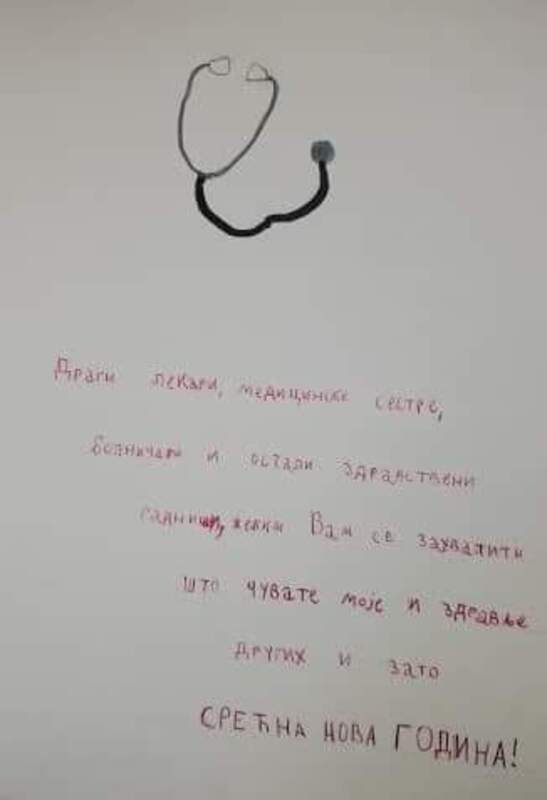 Драги лекари, медицинске сестре,
болничари и остали здравствени
радници, желим Вам се захвалити
што чувате моје и здравље
других и зато
СРЕЋНА НОВА ГОДИНА!